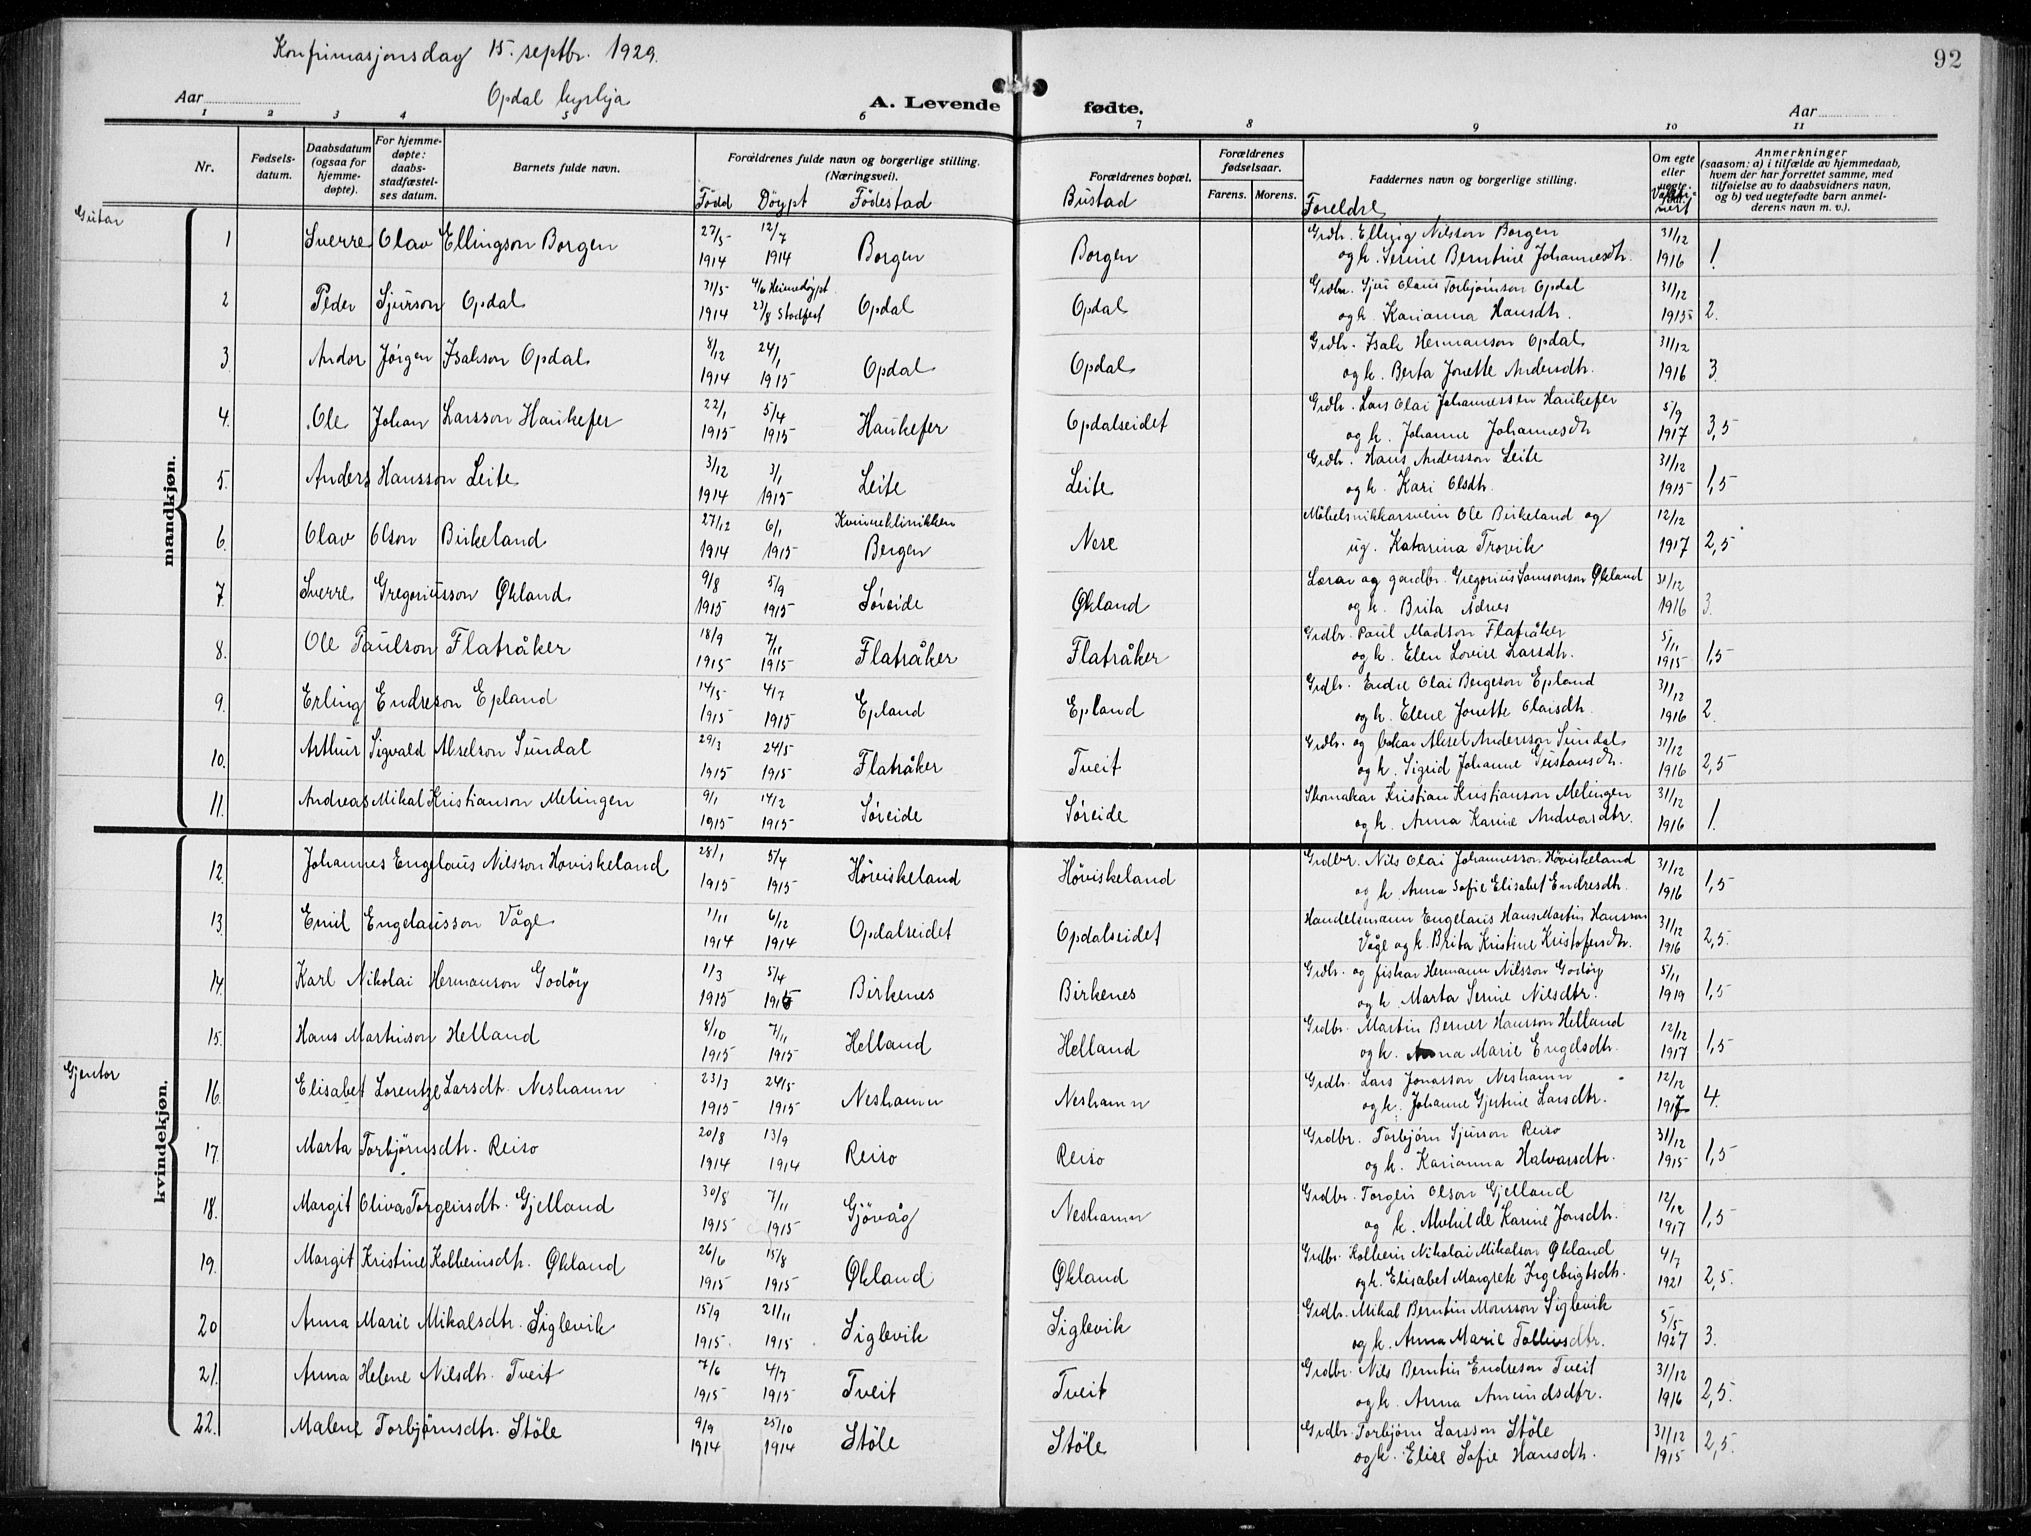 92
Konfirmasjonsdag 15. septbr. 1929.
Opdal kyrkja
Aar
A. Levende fødte.
Aar
1 2 3 4 5 6 7 8 9 10 11
Nr.
Fødsels-
datum.
Daabsdatum
(ogsaa for
hjemme-
døpte).
For hjemme-
døpte:
daabs-
stadfæstel-
ses datum.
Barnets fulde navn.
Forældrenes fulde navn og borgerlige stilling.
(Næringsvei).
Född Döypt Födestad
Forældrenes bopæl.
Bustad
Forældrenes
fødselsaar.
Farens. Morens.
Faddernes navn og borgerlige stilling.
Foreldre
Om egte
eller
Anmerkninger
(saasom: a) i tilfælde av hjemmedaab,
hvem der har forrettet samme, med
tilføielse av to daabsvidners navn,
og b) ved uegtefødte barn anmel-
derens navn m. v.).
Gutar
mandkjøn.
1 Sverre Olav Ellingson Borgen 27/5 1914 12/7 1914 Borgen Borgen Grdbr. Elling Nilsson Borgen 31/12
og k. Serine Berntine Johannesdtr. 1916 1.
2 Peder Sjurson Opdal 31/5 1914 4/6 Heimedöypt 23/8 Stadfest Opdal Opdal Grdbr. Sjur Olaus Torbjørnson Opdal 31/12
og k. Karianna Hansdtr. 1915 2.
3. Andor Jørgen Isakson Opdal 8/12 1914 24/1 1915 Opdal Opdal Grdbr. Isak Hermanson Opdal 31/12
og k. Berta Jonette Andersdtr. 1916 3.
4. Ole Johan Larsson Haukefer 22/1 1915 5/4 1915 Haukefer Opdalseidet Grdbr. Lars Olai Johannessen Haukefer 5/9
og k. Johanne Johannesdtr 1917 3,5
5. Anders Hansson Leite 3/12 1914 3/1 1915 Leite Leite Grdbr. Hans Andersson Leite 31/12
og k. Kari Olsdtr. 1915 1,5
6. Olav Olson Birkeland 27/12 1914 6/1 1915 Kvinneklinikken Bergen Nese Möbelsnikkarsvein Ole Birkeland og 12/12
ug. Katarina Trovik 1917 2,5
7. Sverre Gregoriusson Økland 9/8 1915 5/9 1915 Söreide Økland Lærar og gardbr. Gregorius Samsonson Økland 31/12
og k. Brita Ådnes 1916 3.
8. Ole Paulson Flatråker 18/9 1915 7/11 1915 Flatråker Flatråker Grdbr. Paul Madson Flatråker 5/11
og k. Elen Lovise Larsdtr. 1915 1,5
9. Erling Endreson Epland 14/5 1915 4/7 1915 Epland Epland Grdbr. Endre Olai Bergeson Epland 31/12
og k. Elene Jonette Olaisdtr. 1916 2.
10. Arthur Sigvald Akselson Sundal 29/3 1915 24/5 1915 Flatråker Tveit Grdbr. og Aksel Andersson Sundal 31/12
og k. Sigrid Johanne Gustavsdtr. 1916 2,5
11. Andreas Mikal Kristianson Melingen 9/1 1915 14/2 1915 Söreide Söreide Skomakar Kristian Kristianson Melingen 31/12
og k. Anna Karine Andreasdtr. 1916 1.
12. Johannes Engelaus Nilsson Hoviskeland 28/1 1915 5/4 1915 Höviskeland Höviskeland Grdbr. Nils Olai Johannesson Höviskeland 31/12
og k. Anna Sofie Elisabet Endresdtr. 1916 1,5
13. Emil Engelausson Våge 1/11 1914 6/12 1914 Opdalseidet Opdalseidet Handelsmann Engelaus Hans Martin Hansson 31/12
Våge og k. Brita Kristine Kristofersdtr. 1916 2,5
14. Karl Nikolai Hermanson Godöy 1/3 1915 5/4 1915 Birkenes Birkenes Grdbr. og fiskar Hermann Nilsson Godöy 5/11
og k. Marta Serine Nilsdtr. 1919 1,5
15. Hans Martinson Helland 8/10 1915 7/11 1915 Helland Helland Grdbr. Martin Berner Hansson Helland 12/12
og k. Anna Marie Engelsdtr. 1917 1,5
Gjentor
kvindekjøn.
16. Elisabet Lorentze Larsdtr. Neshamn 23/3 1915 24/5 1915 Neshamn Neshamn Grdbr. Lars Jonasson Neshamn 12/12
og k. Johanne Gjertine Larsdtr. 1917 4.
17. Marta Torbjörnsdtr. Reiso 20/8 1914 13/9 1914 Reiso Reiso Grdbr. Torbjørn Sjurson Reiso 31/12
og k. Karianna Halvarsdtr. 1915 1,5
18. Margit Oliva Torgeirsdtr. Gjelland 30/8 1915 7/11 1915 Gjövåg Neshamn Grdbr. Torgeir Olson Gjelland 12/12
og k. Alvhilde Karine Jonsdtr. 1917 1,5
19. Margit Kristine Kolbeinsdtr. Økland 26/6 1915 15/8 1915 Økland Økland Grdbr. Kolbein Nikolai Mikalson Økland 4/7
og k. Elisabet Margrete Ingebrigtsdtr. 1921 2,5.
20 Anna Marie Mikalsdtr. Siglevik 15/9 1915. 21/11 1915 Siglevik Siglevik Grdbr. Mikal Berntin Monsson Siglevik 5/5
og k. Anna Marie Tolleivsdtr. 1927 3.
21. Anna Helene Nilsdtr. Tveit 7/6 1915 4/7 1915 Tveit Tveit Grdbr. Nils Berntin Endreson Tveit 31/12
og k. Anna Amundsdtr. 1916 2,5.
22. Malene Torbjörnsdtr. Stöle 9/9 1914 25/10 1914 Stöle Stöle Grdbr. Torbjörn Larsson Stöle 31/12
og k. Elise Sofie Hansdtr. 1915 2,5